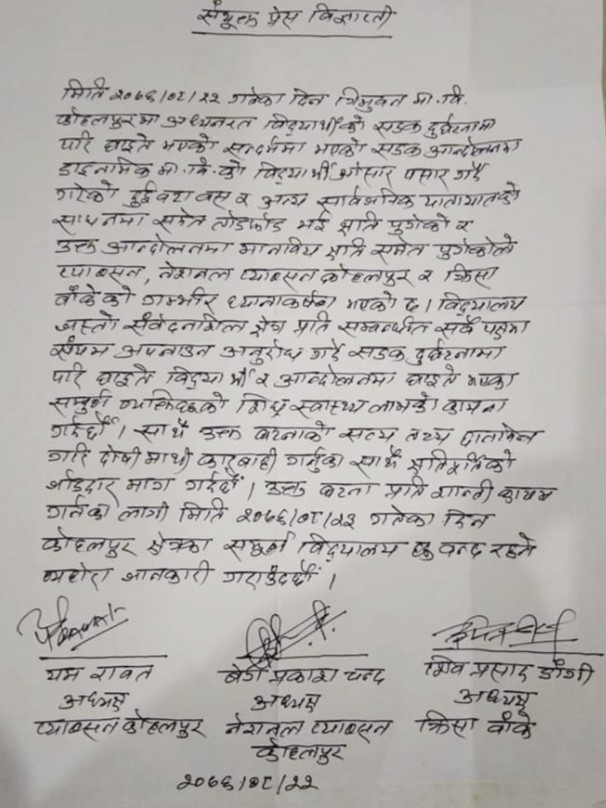 संयुक्त प्रेस विज्ञप्ती
मिति २०७६/०८/२२ गतेका दिन त्रिभुवन मा.वि.
कोहलपुरमा अध्यनरत विद्यार्थीको सडक दुर्घटनामा
परि घाइते भएको सन्दर्भमा भएको सडक आन्दोलनमा
डाइनामिक मा.वि.को विद्यार्थी ओसार पसार गर्दै
गरेको दुईवटा बस र अन्य सार्वजनिक यातायातको
साधनमा समेत तोडफोड भई क्षति पुगेको र
उक्त आन्दोलनमा मानविय क्षति समेत पुगेकोले
प्याब्सन, नेशनल प्याब्सन कोहलपुर र क्रिसा
बाँकेको गम्भीर ध्यानाकर्षण भएको छ। विद्यालय
जस्तो संवेदनशिल क्षेत्र प्रति सम्बन्धीत सबै पक्षमा
संयम अपनाउन अनुरोध गर्दै सडक दुर्घटनामा
परि घाइते विद्यार्थी र आन्दोलनमा घाइते भएका
सम्पुर्ण व्यक्तिहरुको शिघ्र स्वास्थ्य लाभको कामना
गर्दछौं। साथै उक्त घटनाको सत्य तथ्य छानविन
गरि दोषी माथी कारबाही गर्नुका साथै क्षतिपूर्तिको
जोडदार माग गर्दछौं। उक्त घटना प्रति शान्ती कायम
गर्नका लागी मिति २०७६/०८/२३ गतेका दिन
कोहलपुर क्षेत्रका सम्पुर्ण विद्यालय हरु बन्द रहने
व्यहोरा जानकारी गराउँदछौं।
यम रावत बेग प्रकाश चन्द शिव प्रसाद डाँगी
अध्यक्ष अध्यक्ष अध्यक्ष
प्याब्सन कोहलपुर नेशनल प्याब्सन क्रिसा बाँके
कोहलपुर
२०७६/०८/२२